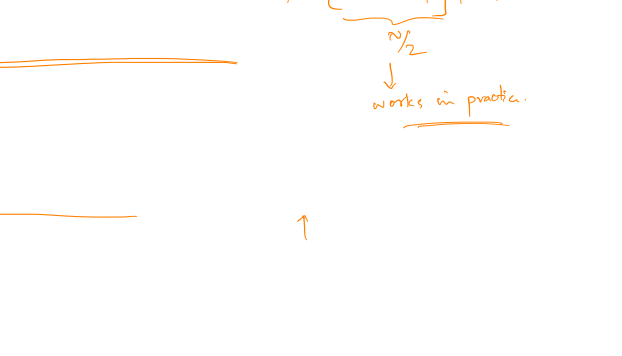 N/2
works in practice.